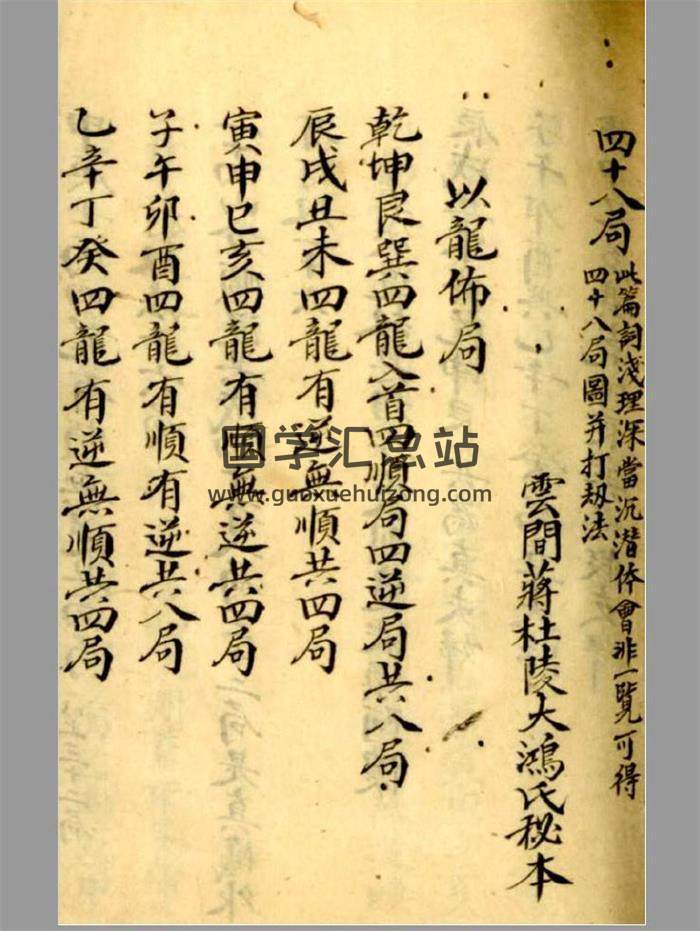 四十八局
此篇詞淺理深當沉潜体會非一覽可得
四十八局圖并打刼法
雲間蔣杜陵大鴻氏秘本
以龍佈局
乾坤艮巽四龍入首四順局四逆局共八局
辰戌丑未四龍有逆無順共四局
寅申巳亥四龍有順無逆共四局
子午卯酉四龍有順有逆共八局
乙辛丁癸四龍有逆無順共四局
国学汇总站
www.guoxuehuizong.com